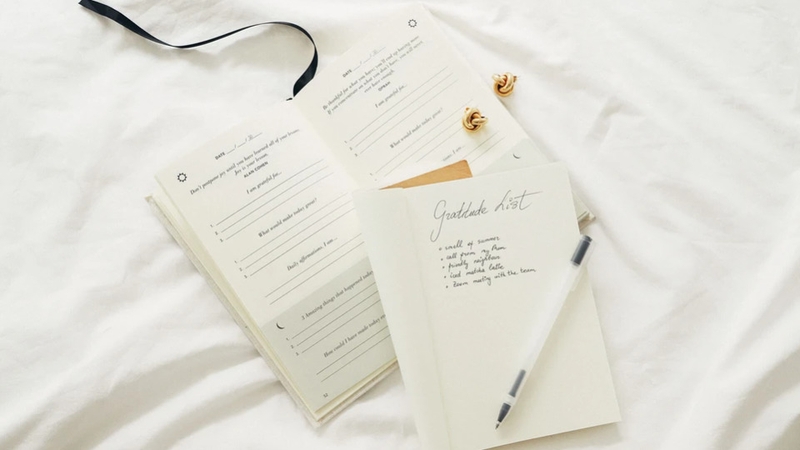 DATE
Don't postpone joy until you have learned all of your lessons.
Joy is your lesson.
ALAN COHEN
I am grateful for...
1.
2.
3.
What would make today great?
Daily affirmations. I am...
3 Amazing things that happened today...
1.
2.
3.
How could I have made today
DATE
Be thankful for what you have; you'll end up having more.
If you concentrate on what you don't have, you will never,
ever have enough.
OPRAH
I am grateful for...
What would make today great?
I am...
Gratitude List
• smell of summer
• call from my Mom
• friendly neighbors
• iced matcha latte
• team meeting with the team